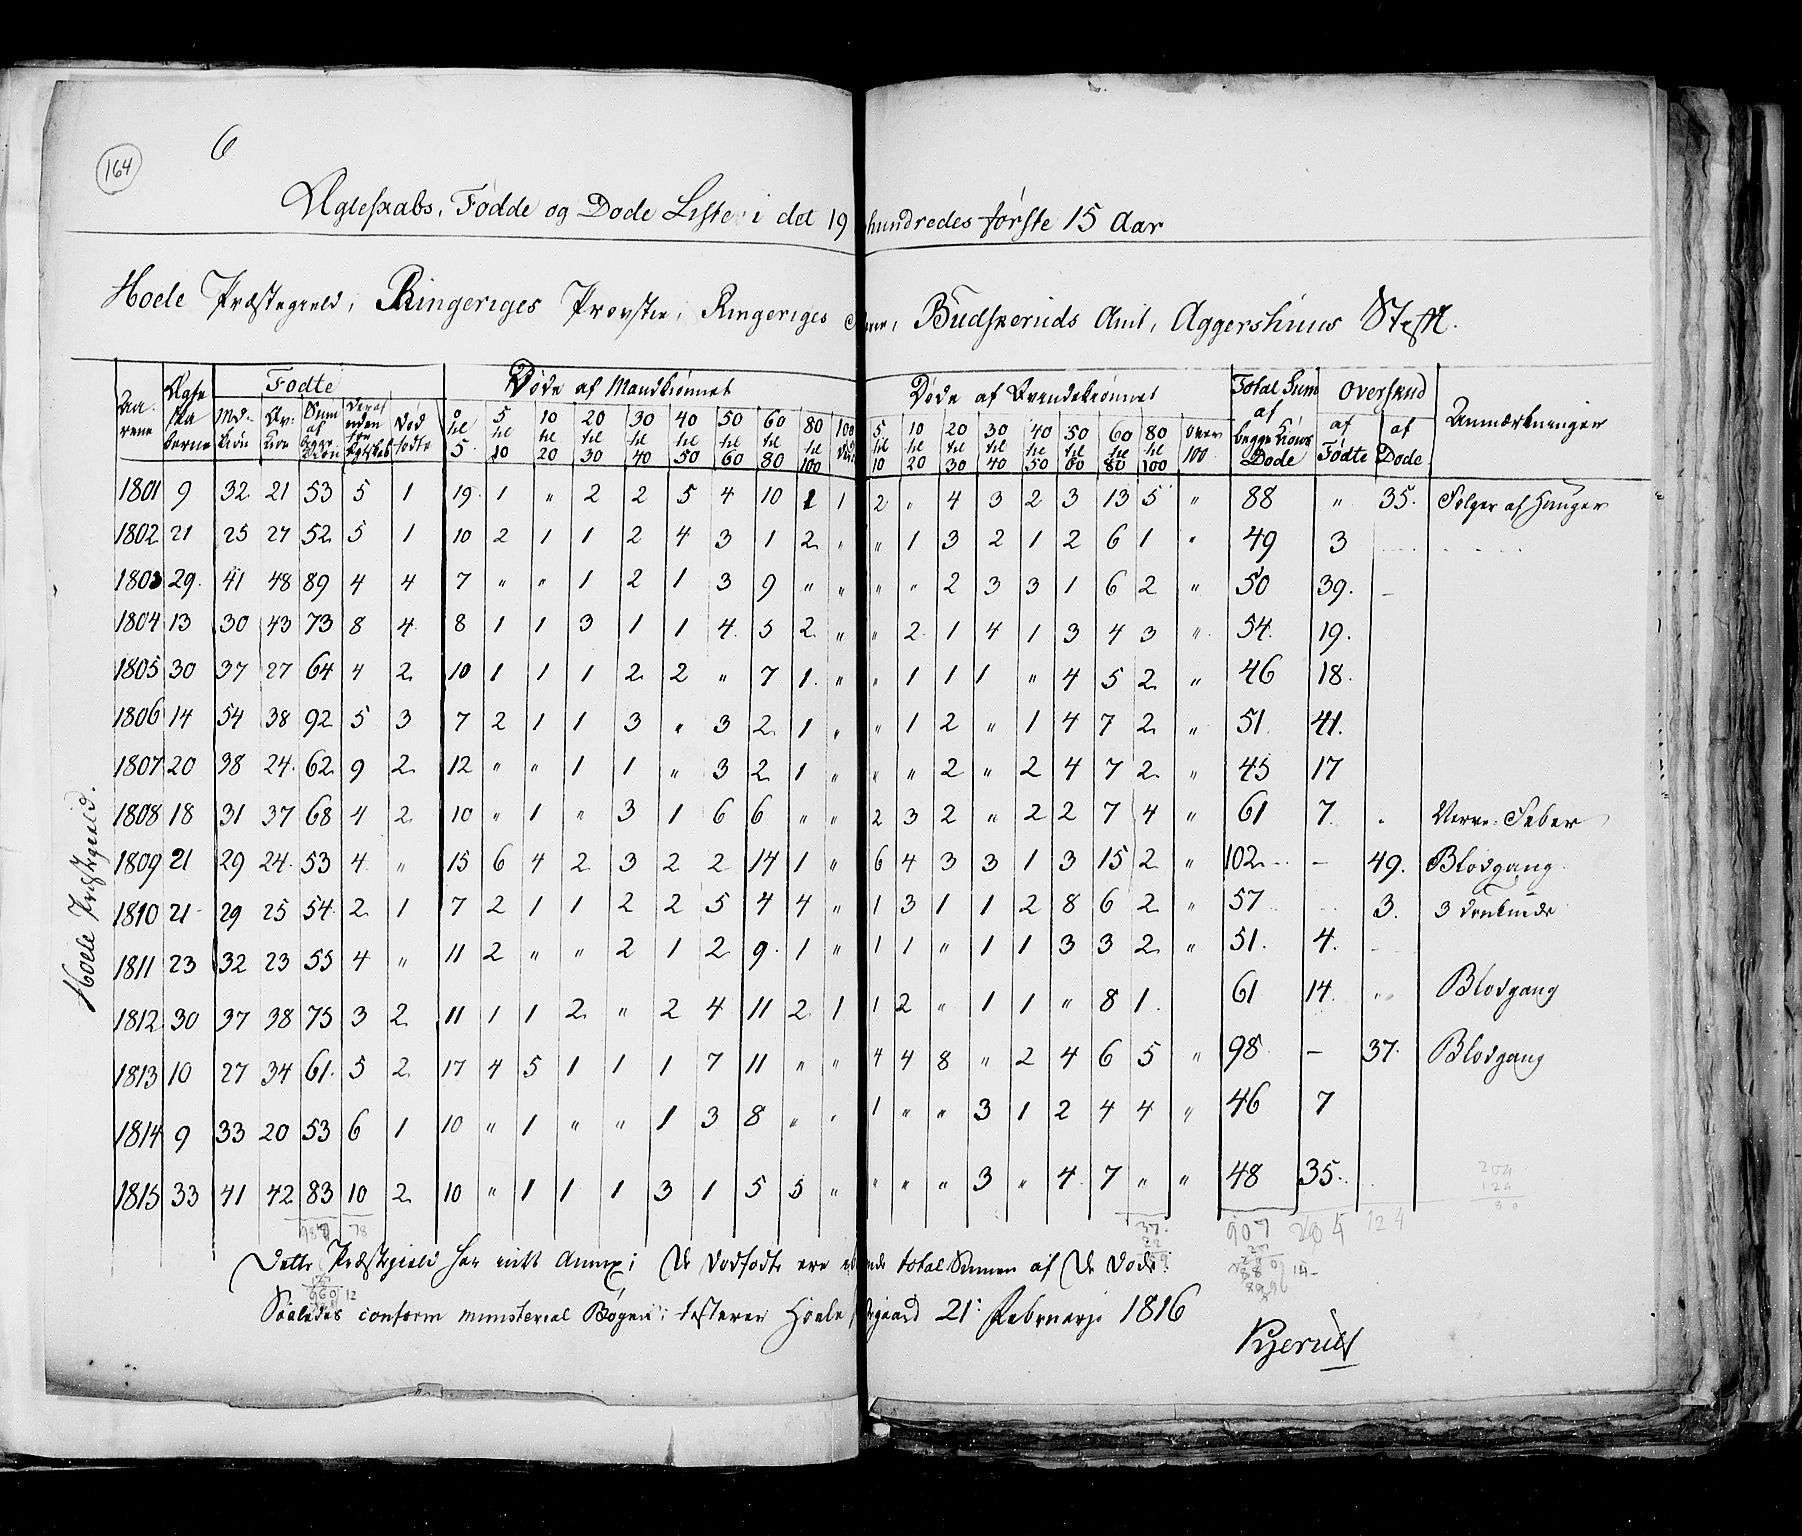 164
6
Ægteskabs, Fødde og Døde Liste i det 19 hundredes første 15 Aar
Hoele Præstegield, Ringeriges Provstie, Ringeriges Budskeruds Amt, Aggershuus Stift.
Aarene Ægteskaberne Fødte Døde af Mandkiønnet Døde af Qvindekiønnet Total Sum af begge Kiøns Døde Overskud Anmærkninger
Mdkiøn Qv:kiøn Sum af begge Kiøn deraf uden for Egteskab Dødfødte 0 til 5 5 til 10 10 til 20 20 til 30 30 til 40 40 til 50 50 til 60 60 til 80 80 til 100 100 5 til 10 10 til 20 20 til 30 30 til 40 40 til 50 50 til 60 60 til 80 80 til 100 over 100 af Fødte af Døde
1801 9 32 21 53 5 1 19 1 " 2 2 5 4 10 1 1 2 " 4 3 2 3 13 5 " 88 " 35. Følger af Hunger
1802 21 25 27 52 5 1 10 2 1 1 2 4 3 1 2 " " 1 3 2 1 2 6 1 " 49 3
1803 29. 41 48 89 4 4 7 " " 1 2 1 3 9 " " " " 2 3 3 1 6 2 " 50 39. –
1804 13 30 43 73 8 4 8 1 1 3 1 1 4 5 2 " " 2 1 4 1 3 4 3 " 54 19.
1805 30 37 27 64 4 2 10 1 1 1 2 2 " 7 1 " " 1 1 1 " 4 5 2 " 46 18.
1806 14 54 38 92 5 3 7 2 1 1 3 " 3 2 1 " " 1 2 " 1 4 7 2 " 51 41.
1807 20 38 24 62 9 2 12 " " 1 1 " 3 2 1 " " " 2 " 2 4 7 2 " 45 17
1808 18 31 37 68 4 2 10 " 1 " 3 1 6 6 " " 2 3 2 " 2 2 7 4 " 61 7 " Nerve Feber
1809 21 29 24 53 4 " 15 6 4 2 3 2 2 14 1 " 6 4 3 3 1 3 15 2 " 102 – 49. Blodgang
1810 21 29 25 54 2 1 7 2 1 1 2 2 5 4 4 " 1 3 1 1 2 8 6 2 " 57 3. 3 druknede
1811 23 32 23 55 4 " 11 2 " " 2 1 2 9 1 " 1 1 " 1 1 3 3 2 " 51. 4.
1812 30 37 38 75 3 2 11 1 1 2 " 2 4 11 2 1 1 2 " 1 1 " 8 1 61 14 " Blodgang
1813 10 27 34 61 5 2 17 4 5 1 1 1 7 11 " " 4 4 8 " 2 4 6 5 " 98 – 37. Blodgang
1814 9 33 20 53 6 1 10 " 1 " " 1 3 8 " " 1 " " 3 1 2 4 4 " 46 7
1815 33 41 42 83 10 2 10 " 1 1 1 3 1 5 5 " " " " 3 " 4 7 " " 48 35.
204
124
78 37 907 204 124
Hoele Præstegield.
Dette Præstegield har intet Annex; De Dødfødte ere total Summen af De Døde
Saaledes conform ministerial Bogen; testerer Hoele 21 Februarji 1816
Kjerulf